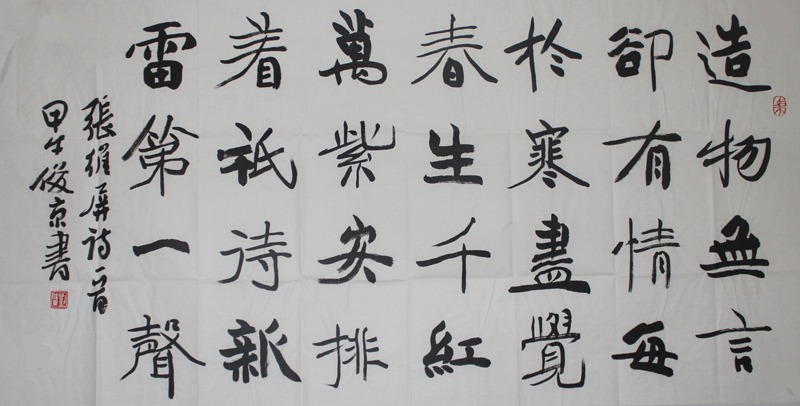 造物無言
卻有情每
於寒盡覺
春生千紅
萬紫安排
着祇待新
雷第一聲
張維屏詩一首
甲午俊京書